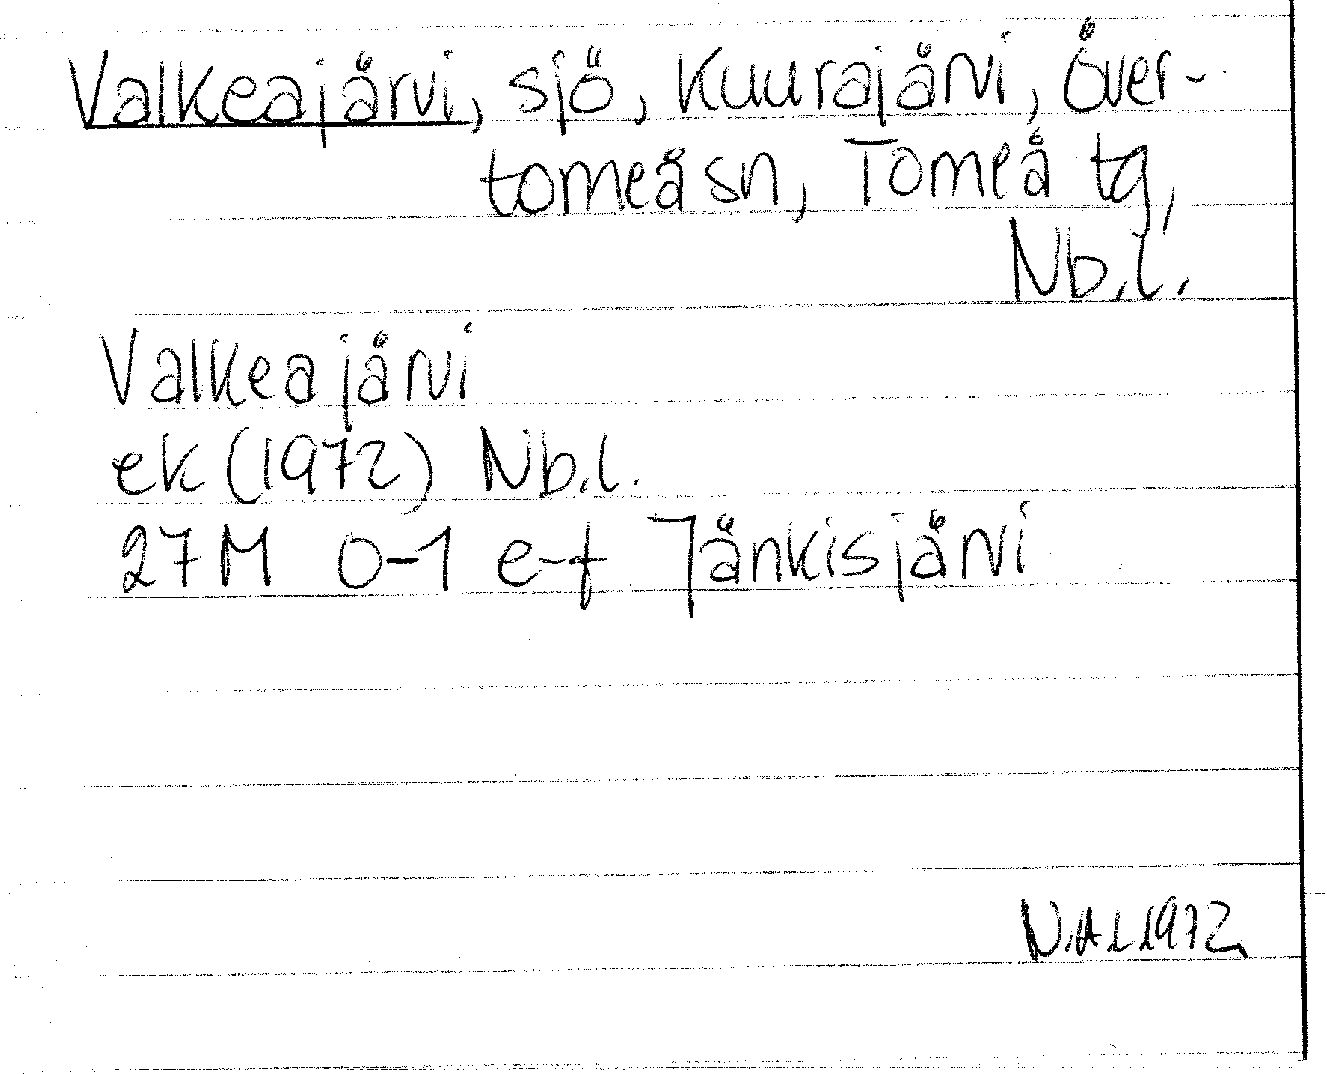 Valkeajärvi, sjö, Kuurajärvi, Över-
torneå sn, Torneå tg,
Nb.l.
Valkeajärvi
ek (1972) Nb.l.
27M 0-1 e-f Jänkisjärvi
1972